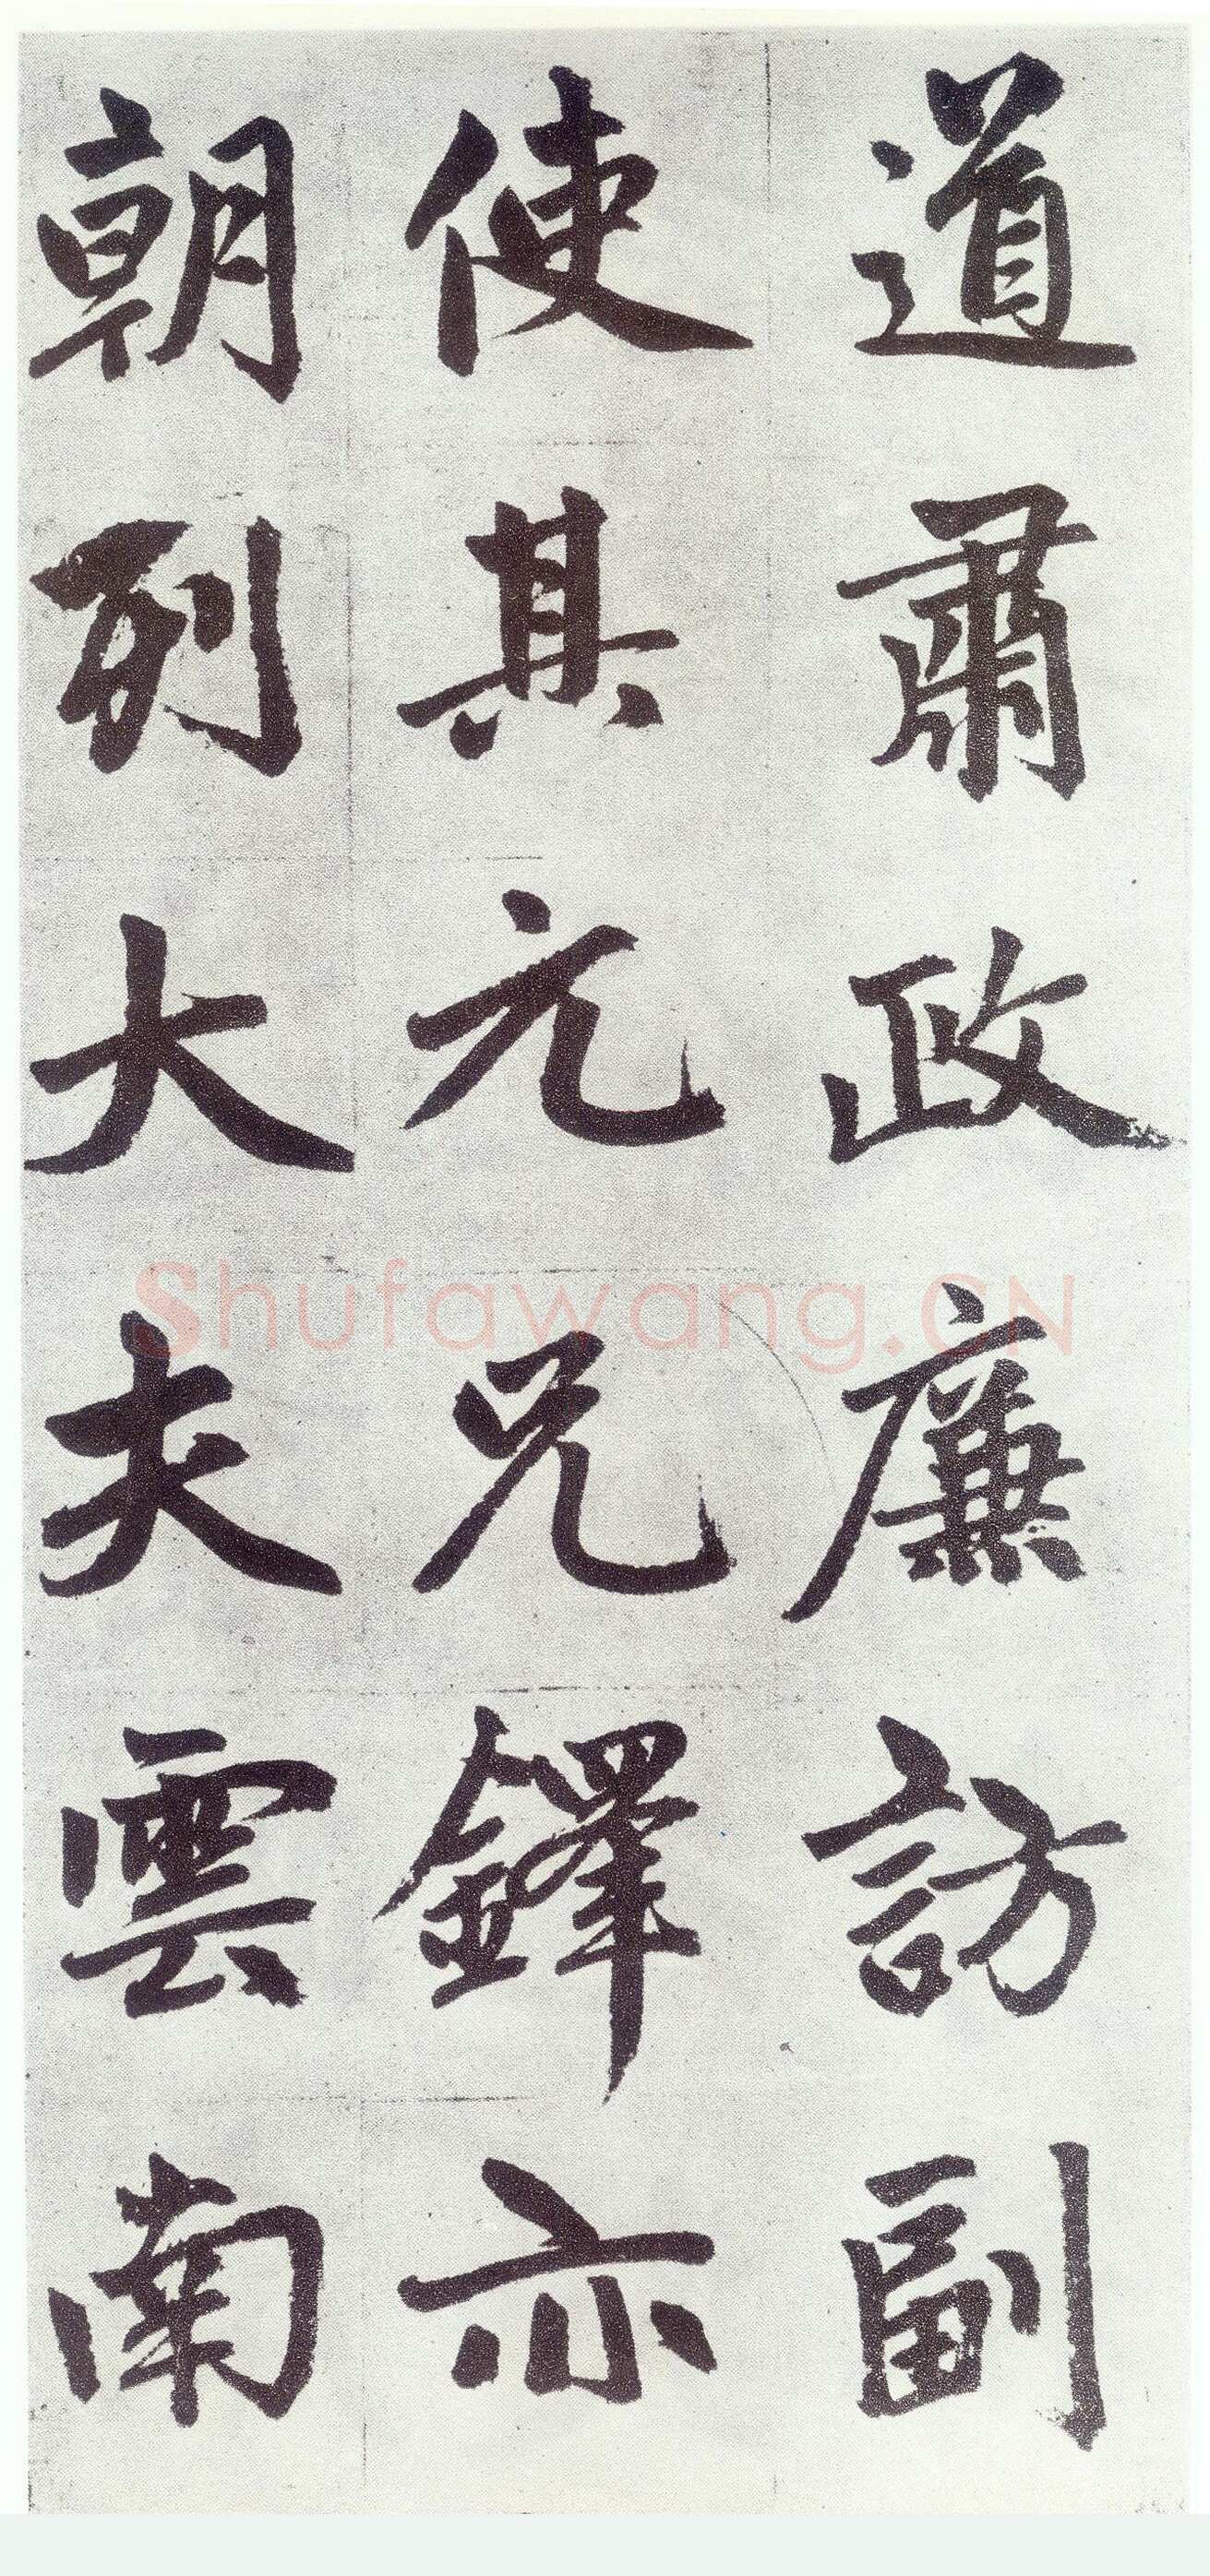 道肅政廉訪副
使其元兄鐸亦
朝列大夫雲南
Shufawang.CN